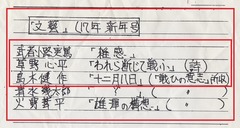 「文藝」 (17年 新年号)
武者小路実篤 「雑感」
草野心平 「われら断じて戦ふ」 (詩)
島木健作 「十二月八日」 (「戦ひの意志」所収)
清水幾太郎 「 〃 」 ( 〃 )
火野葦平 「雄渾の構想」 ( 〃 )